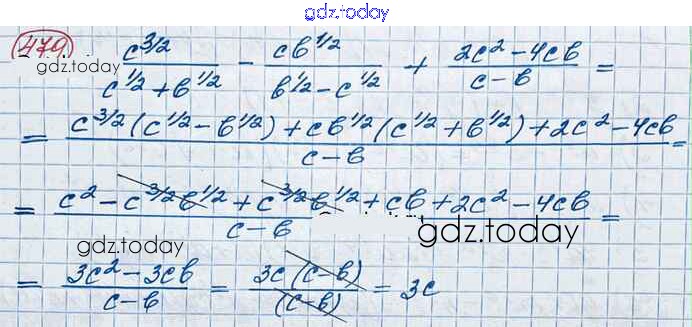 gdz.today
479
gdz.today
c^{3/2}/(c^{1/2} + b^{1/2}) - cb^{1/2}/(b^{1/2} - c^{1/2}) + (2c² - 4cb)/(c - b) =
= (c^{3/2}(c^{1/2} - b^{1/2}) + cb^{1/2}(c^{1/2} + b^{1/2}) + 2c² - 4cb)/(c - b) =
= (c² - c^{3/2}b^{1/2} + c^{3/2}b^{1/2} + cb + 2c² - 4cb)/(c - b) =
gdz.today
gdz.today
= (3c² - 3cb)/(c - b) = 3c(c - b)/(c - b) = 3c